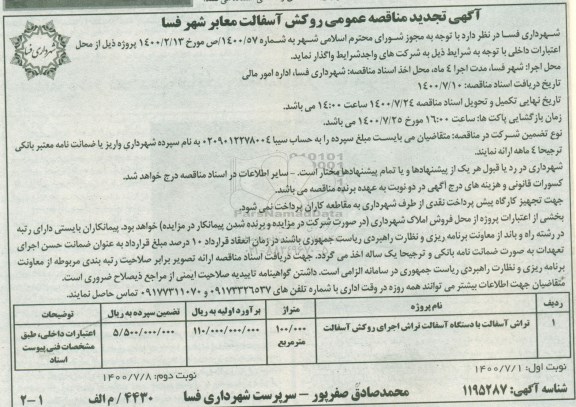 آگهی تجدید مناقصه عمومی روکش آسفالت معابر شهر فسا
شهرداری فسا در نظر دارد با توجه به مجوز شورای محترم اسلامی شهر به شماره ۱۴۰۰/۵۷/ص مورخ ۱۴۰۰/۲/۱۳ پروژه ذیل از محل
اعتبارات داخلی با توجه به شرایط ذیل به شرکت های واجدشرایط واگذار نماید.
محل اجرا: شهر فسا، مدت اجرا ۴ ماه، محل اخذ اسناد مناقصه: شهرداری فسا، اداره امور مالی
تاریخ دریافت اسناد مناقصه: ۱۴۰۰/۷/۱۰
تاریخ نهایی تکمیل و تحویل اسناد مناقصه ۱۴۰۰/۷/۲۴ ساعت ۱۴:۰۰ می باشد.
زمان بازگشایی پاکت ها: ساعت ۱۶:۰۰ مورخ ۱۴۰۰/۷/۲۵ می باشد.
نوع تضمین شرکت در مناقصه: متقاضیان می بایست مبلغ سپرده را به حساب سیبا ۰۲۰۹۰۱۲۲۷۸۰۰۴ به نام سپرده شهرداری واریز یا ضمانت نامه معتبر بانکی
ترجیحا ۴ ماهه ارائه نمایند.
شهرداری در رد یا قبول هر یک از پیشنهادها و یا تمام پیشنهادها مختار است. - سایر اطلاعات در اسناد مناقصه درج خواهد شد.
کسورات قانونی و هزینه های درج آگهی در دو نوبت به عهده برنده مناقصه می باشد.
جهت تجهیز کارگاه پیش پرداخت نقدی از طرف شهرداری به مقاطعه کاران پرداخت نمی شود.
بخشی از اعتبارات پروژه از محل فروش املاک شهرداری (در صورت شرکت در مزایده و برنده شدن پیمانکار در مزایده) خواهد بود. پیمانکاران بایستی دارای رتبه
در رشته راه و باند از معاونت برنامه ریزی و نظارت راهبردی ریاست جمهوری باشند در زمان انعقاد قرارداد ۱۰ درصد مبلغ قرارداد به عنوان ضمانت حسن اجرای
تعهدات به صورت ضمانت نامه بانکی و ترجیحا یک ساله اخذ می گردد. جهت دریافت اسناد مناقصه ارائه تصویر برابر صلاحیت رتبه بندی مربوطه از معاونت
برنامه ریزی و نظارت راهبردی ریاست جمهوری در سامانه الزامی است. داشتن گواهینامه تاییدیه صلاحیت ایمنی از مراجع ذیصلاح ضروری است.
متقاضیان جهت اطلاعات بیشتر می توانند همه روزه در وقت اداری با شماره تلفن های ۰۹۱۷۳۳۲۶۵۳۷ و ۰۹۱۷۷۳۱۱۰۷۰ تماس حاصل نمایند.
ردیف نام پروژه متراژ برآورد اولیه به ریال تضمین سپرده به ریال توضیحات
۱ تراش آسفالت با دستگاه آسفالت تراش اجرای روکش آسفالت ۱۰۰/۰۰۰ مترمربع ۱۱۰/۰۰۰/۰۰۰/۰۰۰ ۵/۵۰۰/۰۰۰/۰۰۰ اعتبارات داخلی، طبق مشخصات فنی پیوست اسناد
نوبت اول: ۱۴۰۰/۷/۱ نوبت دوم: ۱۴۰۰/۷/۸
شناسه آگهی: ۱۱۹۵۲۸۷ محمدصادق صفرپور - سرپرست شهرداری فسا ۴۴۳۰ / م الف ۲-۱